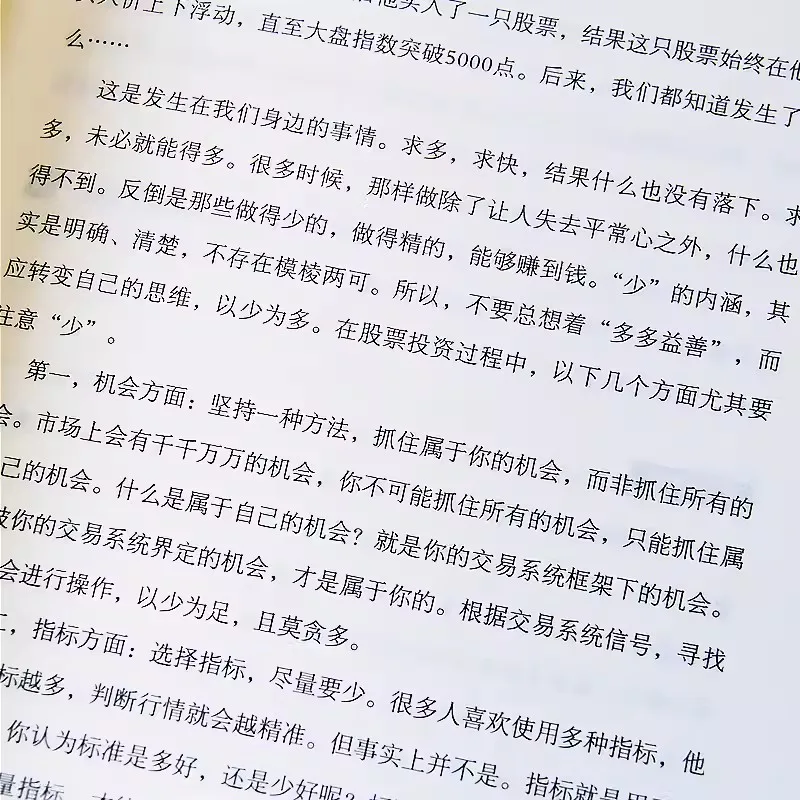 他买入了一只股票，结果这只股票始终在他
入价上下浮动，直至大盘指数突破5000点。后来，我们都知道发生了
么……
这是发生在我们身边的事情。求多，求快，结果什么也没有落下。求
多，未必就能得多。很多时候，那样做除了让人失去平常心之外，什么也
得不到。反倒是那些做得少的，做得精的，能够赚到钱。“少”的内涵，其
实是明确、清楚，不存在模棱两可。所以，不要总想着“多多益善”，而
应转变自己的思维，以少为多。在股票投资过程中，以下几个方面尤其要
注意“少”。
第一，机会方面：坚持一种方法，抓住属于你的机会，而非抓住所有的
会。市场上会有千千万万的机会，你不可能抓住所有的机会，只能抓住属
己的机会。什么是属于自己的机会？就是你的交易系统框架下的机会。
被你的交易系统界定的机会，才是属于你的。根据交易系统信号，寻找
会进行操作，以少为足，且莫贪多。
二，指标方面：选择指标，尽量要少。很多人喜欢使用多种指标，他
标越多，判断行情就会越精准。但事实上并不是。指标就是用
你认为标准是多好，还是少好呢？
量指标，